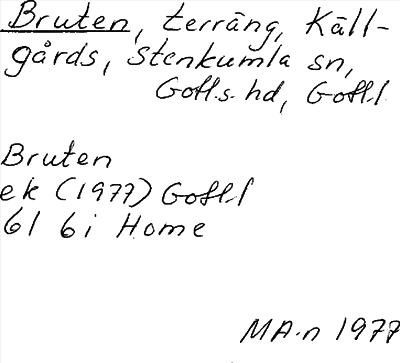 Bruten, terräng, Käll-
gårds, Stenkumla sn,
Gotl.s. hd, Gotl.l
Bruten
ek (1977) Gotl.l
6I 6i Home
MA.n 1977